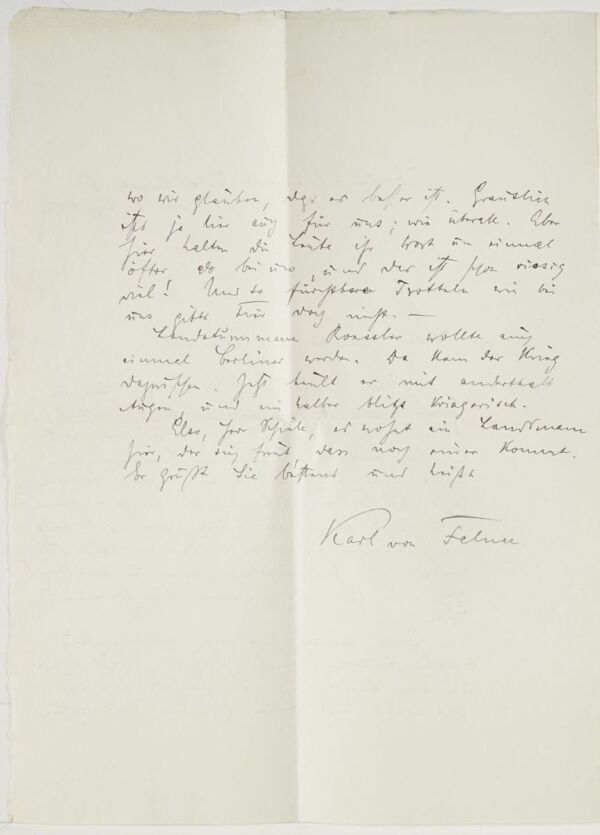 wo wir glauben, dass es besser ist. Grauslich
ists ja hier auch für uns; wie überall. Aber
hier halten die Leute ihr Wort um einmal
öfter, als bei uns, und das ist schon riesig
viel! Und so furchtbare Trotteln wie bei
uns gibts hier doch nicht. —
Landsturmmann Roessler wollte auch
einmal Berliner werden. Da kam der Krieg
dazwischen. Jetzt heult er mit anderthalb
Augen, und ein halber blitzt kriegerisch.
Also, Herr Schiele, es wohnt ein Landsmann
hier, der sich freut, dass noch einer kommt.
Er grüßt Sie bestens und heißt
Karl von Felner